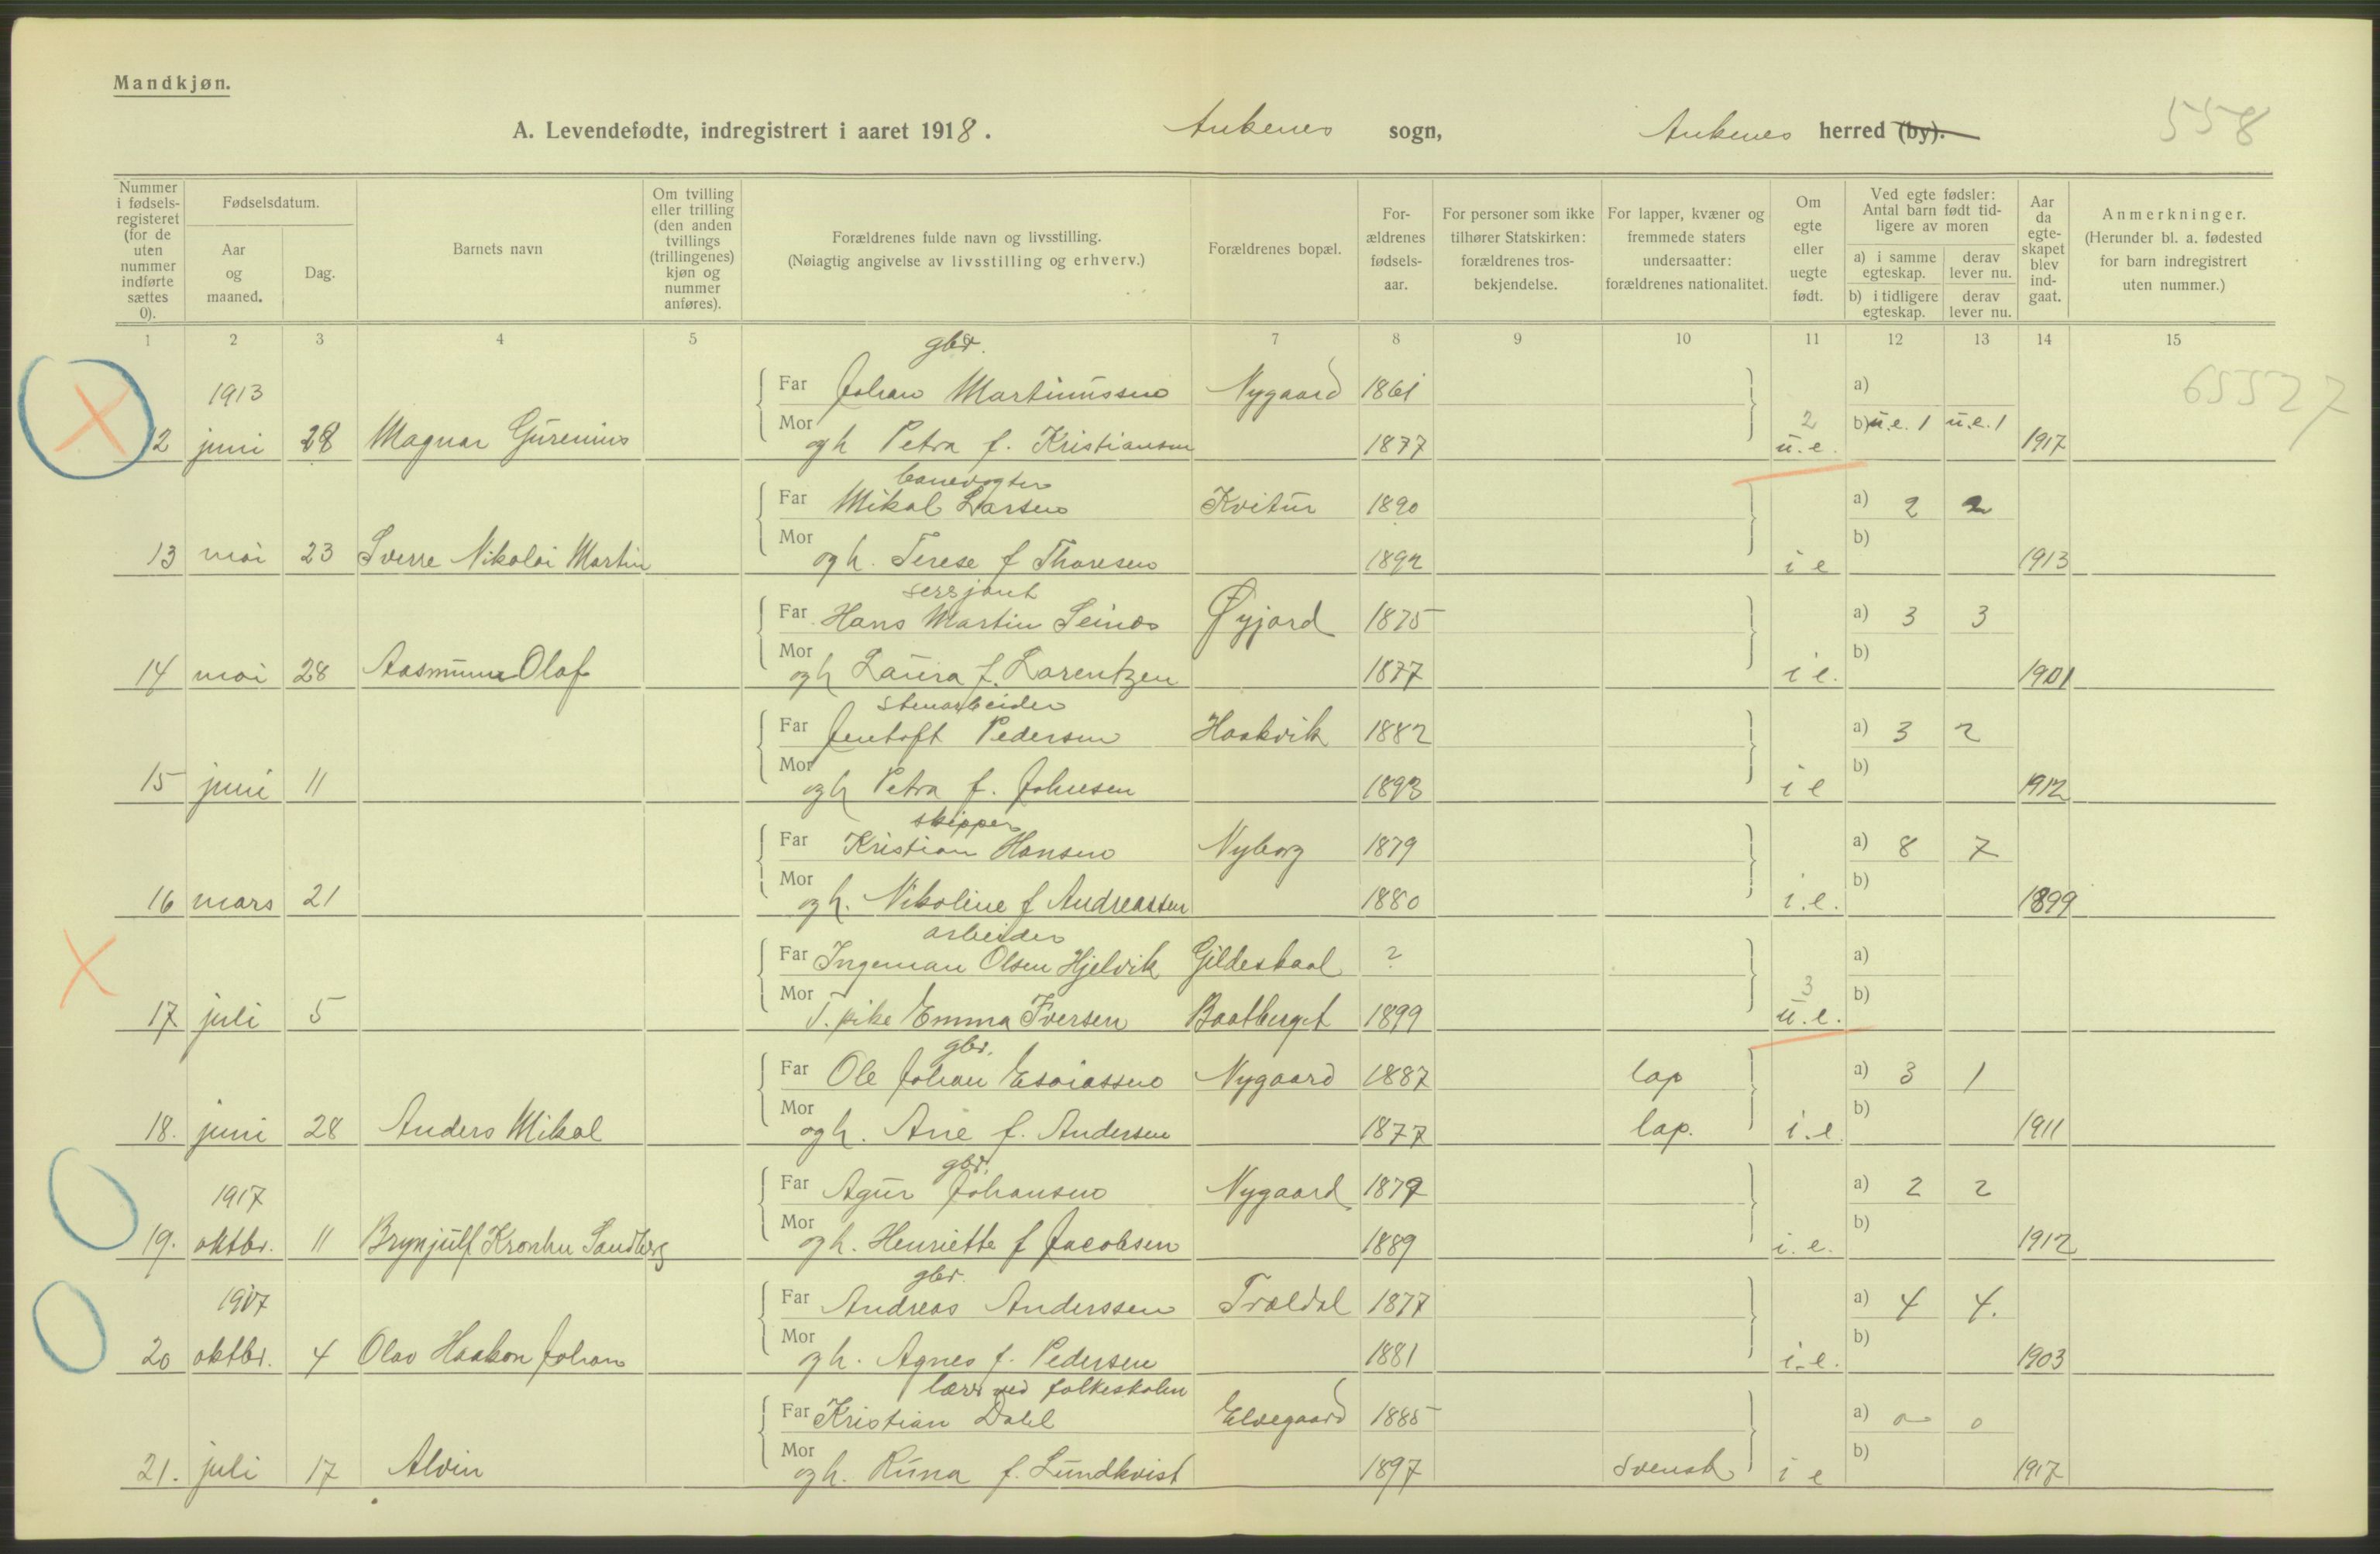 Mandkjøn.
A. Levendefødte, indregistrert i aaret 1918. Ankenes sogn, Ankenes herred (by). 558
Nummer i fødselsregisteret (for de uten nummer indførte sættes 0).
Fødselsdatum.
Aar og maaned.
Dag.
Barnets navn
Om tvilling eller trilling (den anden tvillings (trillingenes) kjøn og nummer anføres).
Forældrenes fulde navn og livsstilling. (Nøiagtig angivelse av livsstilling og erhverv.)
Forældrenes bopæl.
Forældrenes fødselsaar.
For personer som ikke tilhører Statskirken: forældrenes trosbekjendelse.
For lapper, kvæner og fremmede staters undersaatter: forældrenes nationalitet.
Om egte eller uegte født.
Ved egte fødsler: Antal barn født tidligere av moren
a) i samme egteskap. derav lever nu.
b) i tidligere egteskap. derav lever nu.
Aar da egteskapet blev indgaat.
Anmerkninger. (Herunder bl. a. fødested for barn indregistrert uten nummer.)
1 2 3 4 5 6 7 8 9 10 11 12 13 14 15
gbr.
1913 Far Johan Martinussen Nygaard 1861 a) 65527
12 juni 28 Magnar Gurenius Mor og h Petra f. Kristiansen 1877 2 u.e. b) u.e. 1 u.e. 1 1917
banevogter
Far Mikal Larsen Kvitur 1890 a) 2 2
13 mai 23 Sverre Nikolai Martin Mor og h. Terese f Thoresen 1892 i e b) 1913
sersjant
Far Hans Martin Seines Øyjord 1875 a) 3 3
14 mai 28 Aasmund Olaf Mor og h Laura f. Lorentzen 1877 i e. b) 1901
stenarbeider
Far Jentoft Pedersen Haakvik 1882 a) 3 2
15 juni 11 Mor og h Petra f. Johnsen 1893 i e b) 1912
skipper
Far Kristian Hansen Nyborg 1879 a) 8 7
16 mars 21 Mor og h. Nikoline f Andreassen 1880 i.e. b) 1899
arbeider
Far Ingeman Olsen Hjelvik Gildeskaal ? a)
17 juli 5 Mor T. pike Emma Iversen Baatberget 1899 3 u.e. b)
gbr.
Far Ole Johan Esaiassen Nygaard 1887 lap a) 3 1
18. juni 28 Anders Mikal Mor og h. Ane f. Andersen 1877 lap. i.e. b) 1911
gbr.
1917 Far Agur Johansen Nygaard 1879 a) 2 2
19. oktbr. 11 Brynjulf Kronhu Sandberg Mor og h. Henriette f Jacobsen 1889 i. e. b) 1912
gbr.
1917 Far Andreas Anderssen Trældal 1877 a) 4 4.
20 oktbr. 4 Olav Haakon Johan Mor og h. Agnes f. Pedersen 1881 i.e. b) 1903
lærer ved folkeskolen
Far Kristian Dahl Elvegaard 1885 a) 0 0
21. juli 17 Alvin Mor og h. Runa f. Lundkvist 1897 svensk i e b) 1917